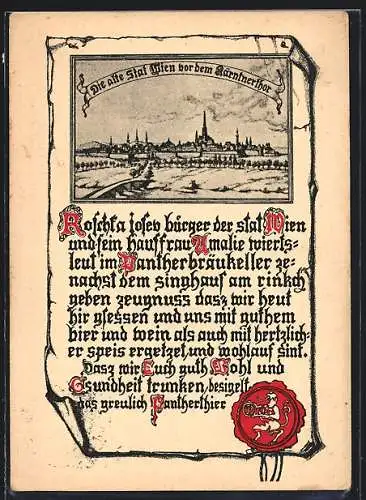 Die alte Stat Wien vor dem Kärntnerthor
Koschka joseb bürger der stat Wien
und sein hauffrau Amalie wierls-
leut im Pantherbräukeller ze-
nachst dem singhaus am rinkch
geben zeugnuss dasz wir heut
hir gsessen und uns mit guthem
bier und wein als auch mit hertzlich-
er speis ergetzet, und wohlauf sint.
Dasz wir Euch guth Wohl und
Gsundheit trunken, besigelt
das greulich Pantherthier